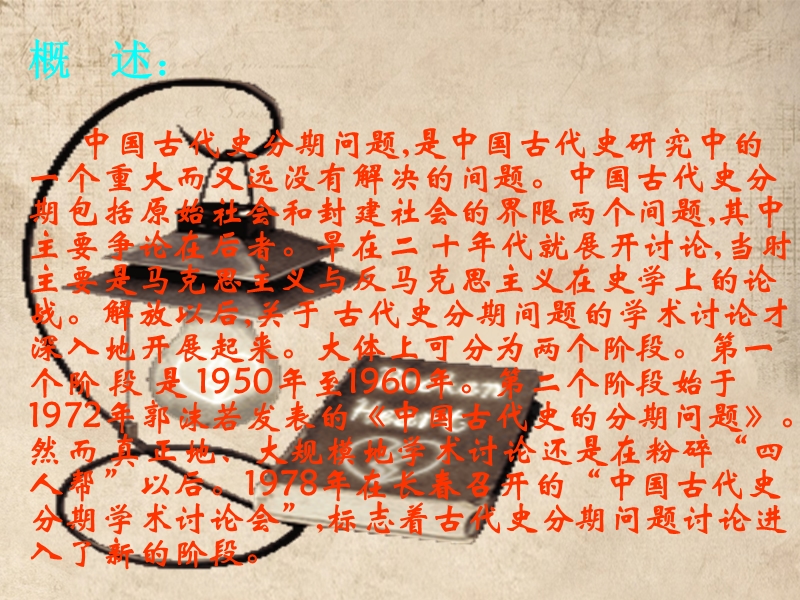 概 述：
中国古代史分期问题,是中国古代史研究中的
一个重大而又远没有解决的间题。中国古代史分
期包括原始社会和封建社会的界限两个间题,其中
主要争论在后者。早在二十年代就展开讨论,当时
主要是马克思主义与反马克思主义在史学上的论
战。解放以后,关于 古代史分期间题的学术讨论才
深入地开展起来。大体上可分为两个阶段。第一
个阶 段 是 1950年至1960年。第二个阶段始于
1972年郭沫若发表的《中国古代史的分期问题》。
然而 真正地、大规模地学术讨论还是在粉碎“四
人帮” 以后。1978年在长春召开的“中国古代史
分期学术讨论会”,标志着古代史分期问题讨论进
入了新的阶段。